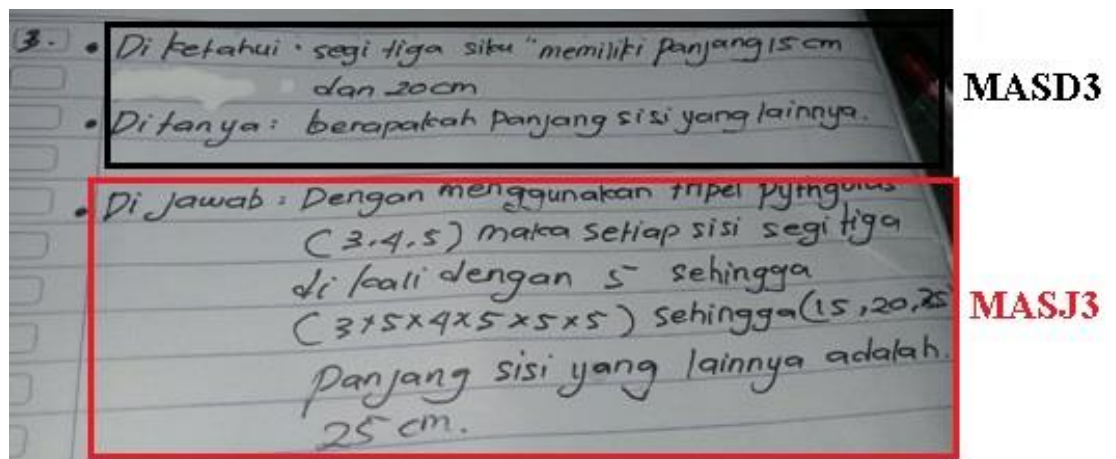 3. • Diketahui : segi tiga siku" memiliki panjang 15 cm
dan 20cm
MASD3
• Ditanya : berapakah panjang sisi yang lainnya.
• Di Jawab : Dengan menggunakan tripel pythgulus
(3.4.5) maka setiap sisi segi tiga
di kali dengan 5 sehingga
(3x5x4x5x5x5) sehingga (15,20,25
MASJ3
panjang sisi yang lainnya adalah.
25 cm.